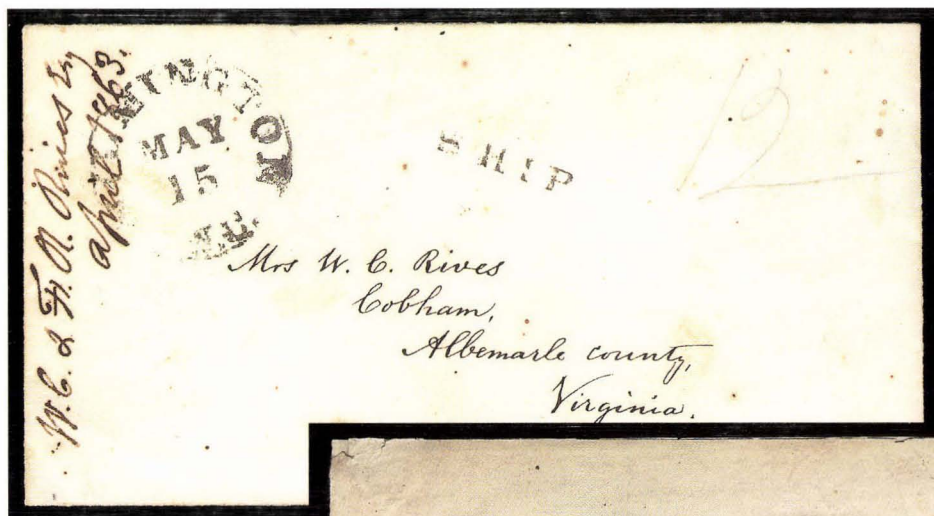 W. C. & F. R. Rives Esq
April 1863.
MINGTON
MAY
15
N.C.
SHIP
12
Mrs W. C. Rives
Cobham,
Albemarle county,
Virginia.